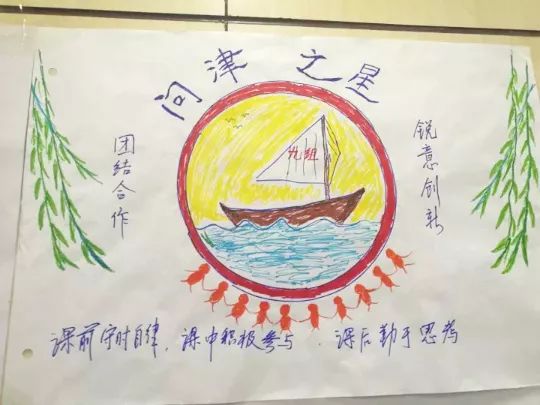 问津之星
团结合作
锐意创新
九组
课前守时自律，课中积极参与．课后勤于思考